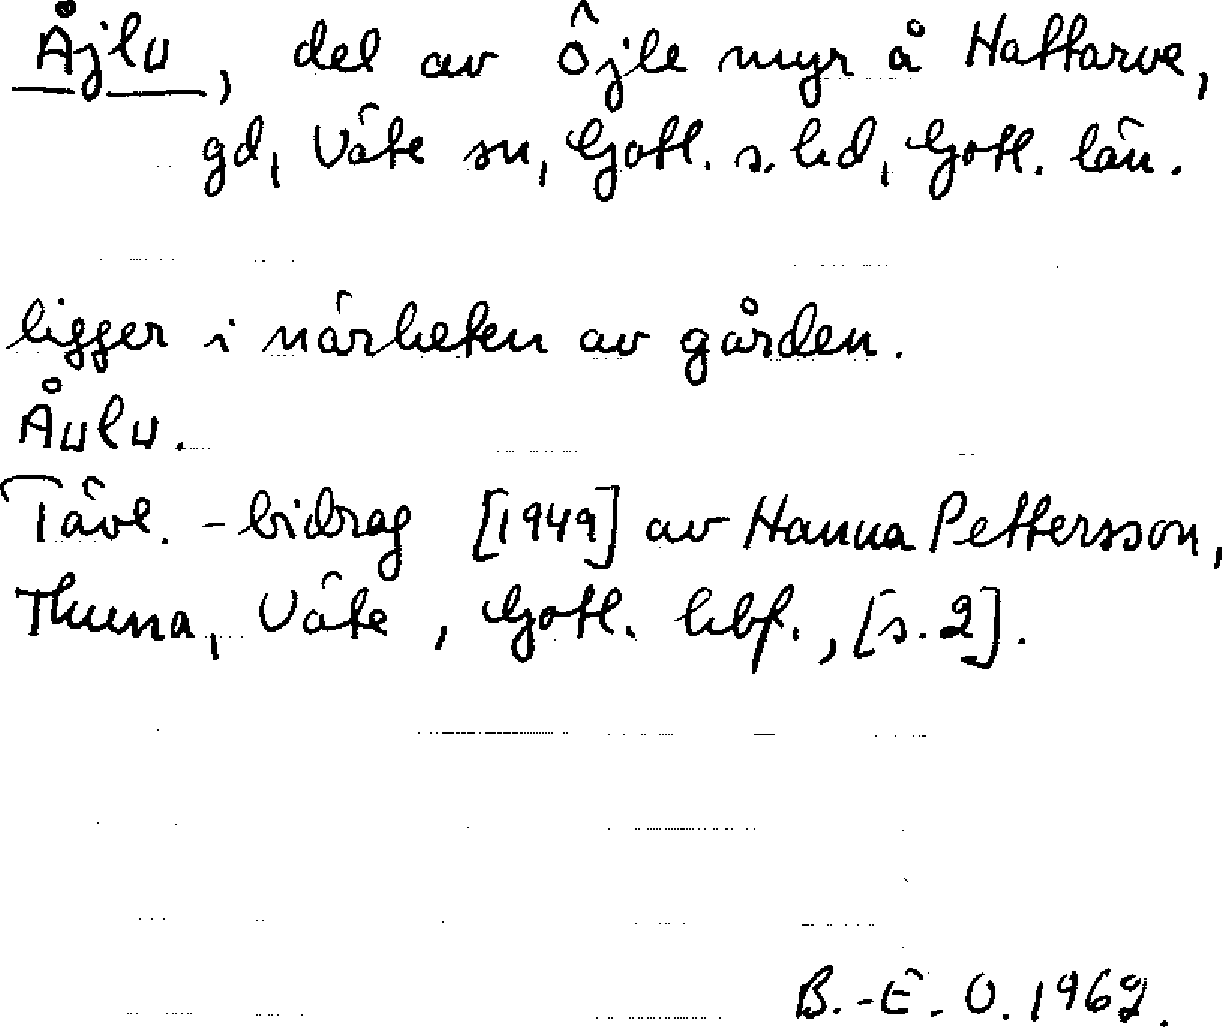 Åjlu, del av Öjle myr å Hattarve,
gd, Väte sn, Gotl. s. hd, Gotl. län.
ligger i närheten av gården.
Åulu.
Tävl. -bidrag [1949] av Hanna Pettersson,
Thuna, Väte, Gotl. hbf., [s. 2].
B.-E. O. 1962.